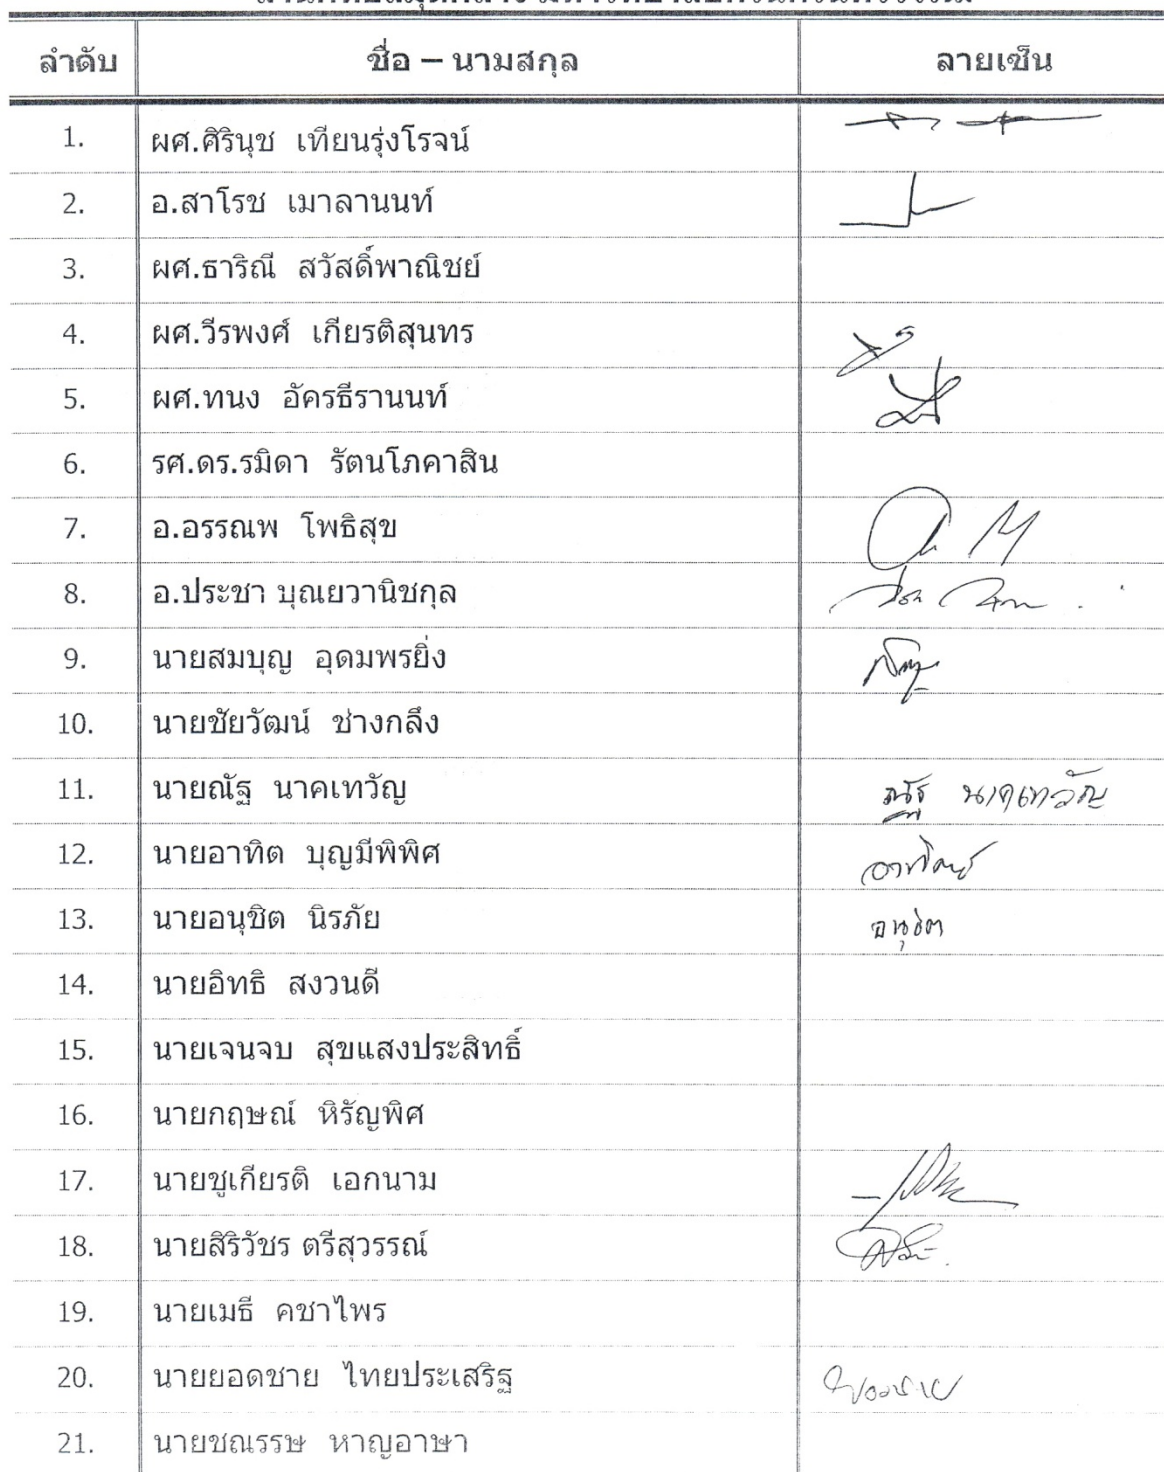 ลำดับ ชื่อ – นามสกุล ลายเซ็น
1. ผศ.ศิรินุช เทียนรุ่งโรจน์
2. อ.สาโรช เมาลานนท์
3. ผศ.ธาริณี สวัสดิ์พาณิชย์
4. ผศ.วีรพงศ์ เกียรติสุนทร
5. ผศ.ทนง อัครธีรานนท์
6. รศ.ดร.รมิดา รัตนโภคาสิน
7. อ.อรรณพ โพธิสุข
8. อ.ประชา บุณยวานิชกุล
9. นายสมบุญ อุดมพรยิ่ง
10. นายชัยวัฒน์ ช่างกลึง
11. นายณัฐ นาคเทวัญ ณัฐ นาคเทวัญ
12. นายอาทิต บุญมีพิพิศ
13. นายอนุชิต นิรภัย อนุชิต
14. นายอิทธิ สงวนดี
15. นายเจนจบ สุขแสงประสิทธิ์
16. นายกฤษณ์ หิรัญพิศ
17. นายชูเกียรติ เอกนาม
18. นายสิริวัชร ตรีสุวรรณ์
19. นายเมธี คชาไพร
20. นายยอดชาย ไทยประเสริฐ ยอดชาย
21. นายชณรรษ หาญอาษา